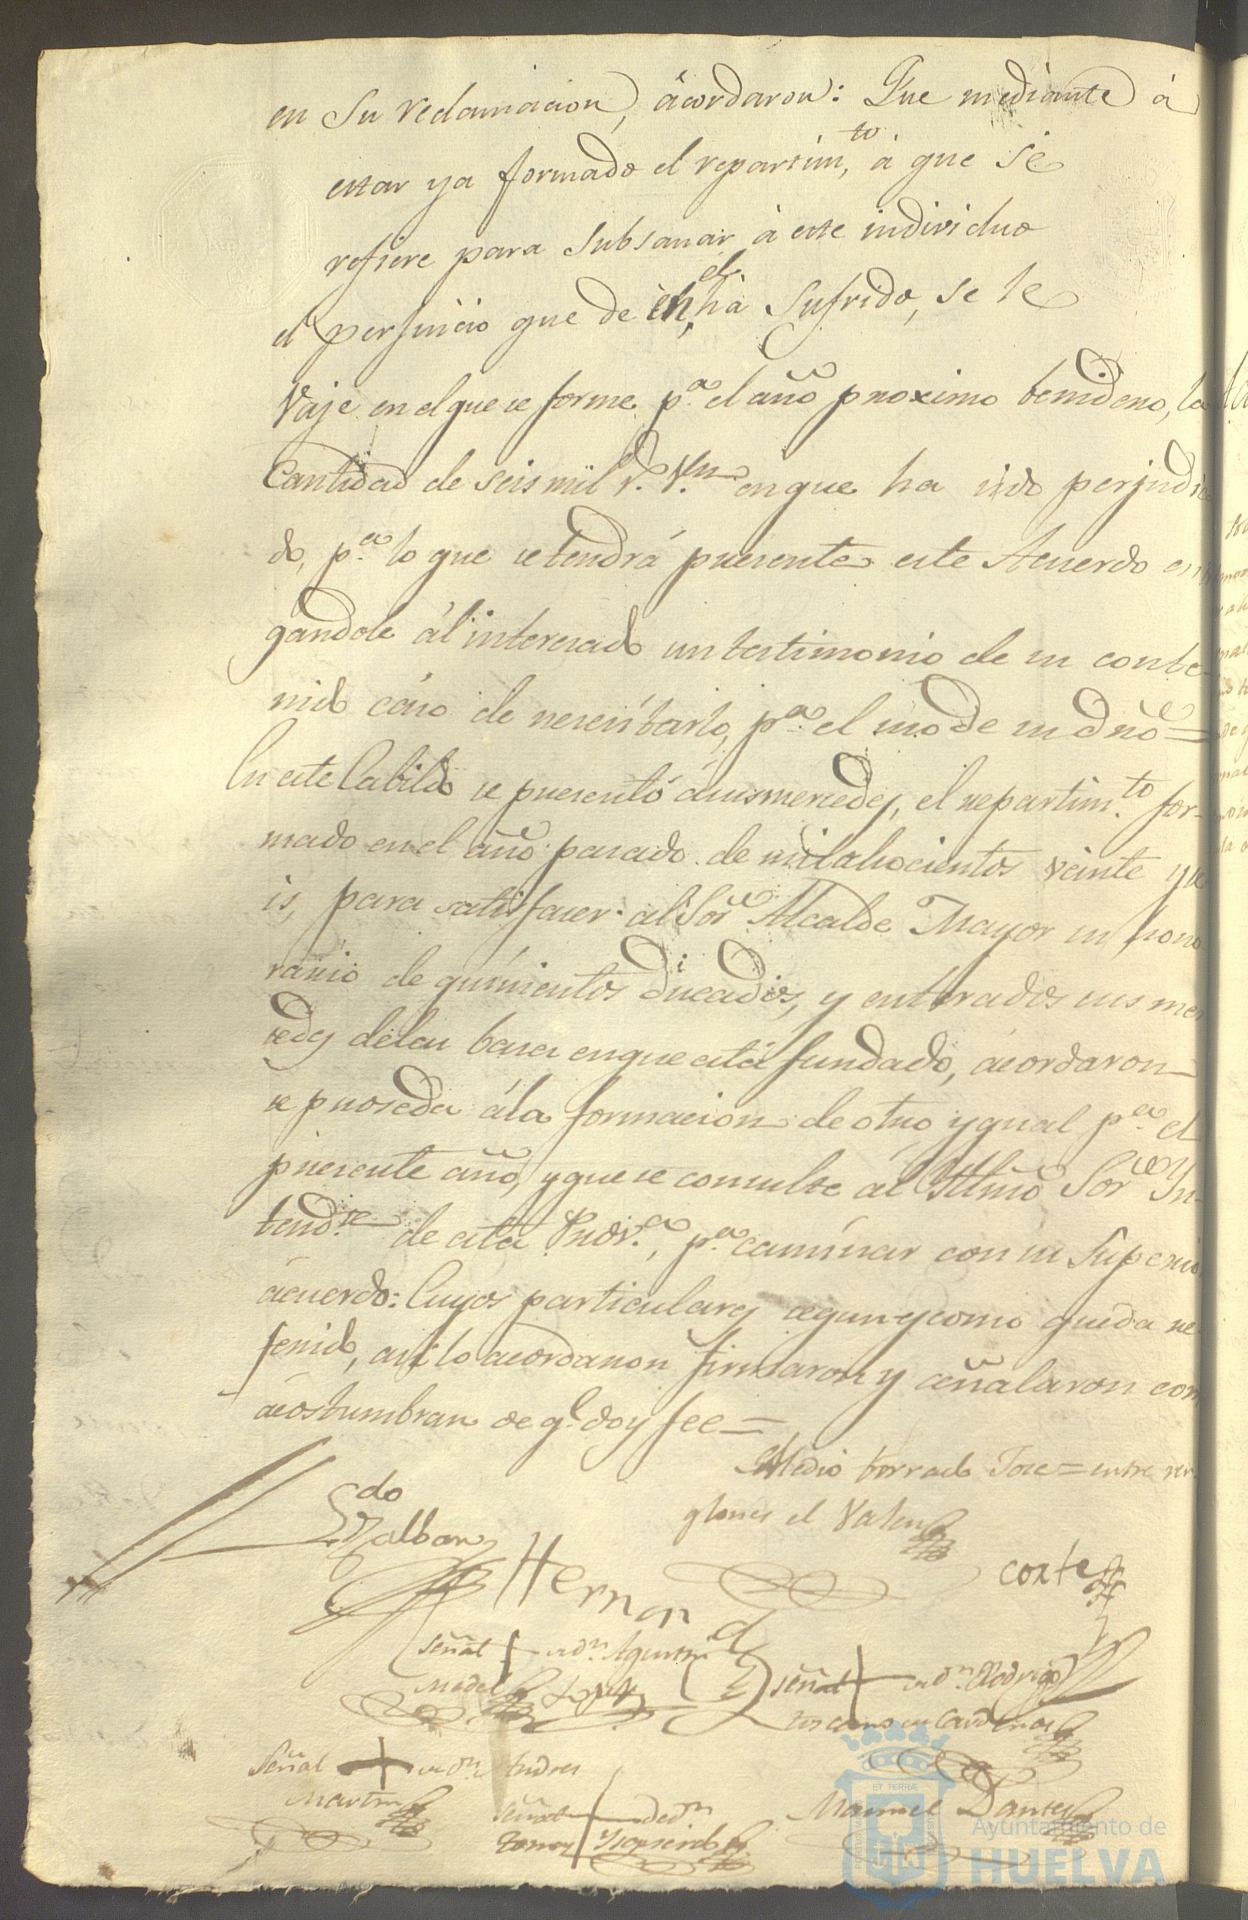 en su reclamacion, acordaron: Que mediante á
estar ya formado el repartim.to á que se
refiere para subsanar á este individuo
el perjuicio que de él há sufrido, se le
vaje en el que se forme p.a el año proximo benidero, la
Cantidad de seis mil r.s V.n en que ha sido perjudica
do, p.a lo que se tendrá presente este Acuerdo
gandole ál interesado un testimonio de su conte
nido cáso de nesesitarlo, p.a el uso de su dro =
En este Cabildo se presentó á sus mercedes, el repartim.to for-
mado en el año pasado de mil ahocientos veinte y se
is, para satisfacer al Sor. Alcalde Mayor su hono
rario de quinientos Ducados, y enterados sus mer
cedes de las bases en que está fundado, acordaron
se proseda á la formacion de otro ygual p.a el
presente año, y que se consulte al Yllmo. Sor. Yn
tend.te de esta Prov.a, p.a caminar con su superior
ácuerdo: Cuyos particulares segun y como queda re
ferido, asi lo acordaron firmaron y señalaron com
ácostumbran de q.e doy fee =
Medio borrado = entre ren
glones el Valen
Ldo
Galban
Hernand
Corte
señal + de Dn. Agustin
López
señal + de Dn. Rodrigo
Cardenas
Señal + de Dn. Andres
Martin
señal + de Dn.
Tomas Yzquierdo
Manuel
ET TERRÆ
Ayuntamiento de
HUELVA